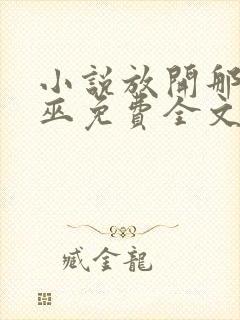 小說放開那
巫免費全文
臧金龍